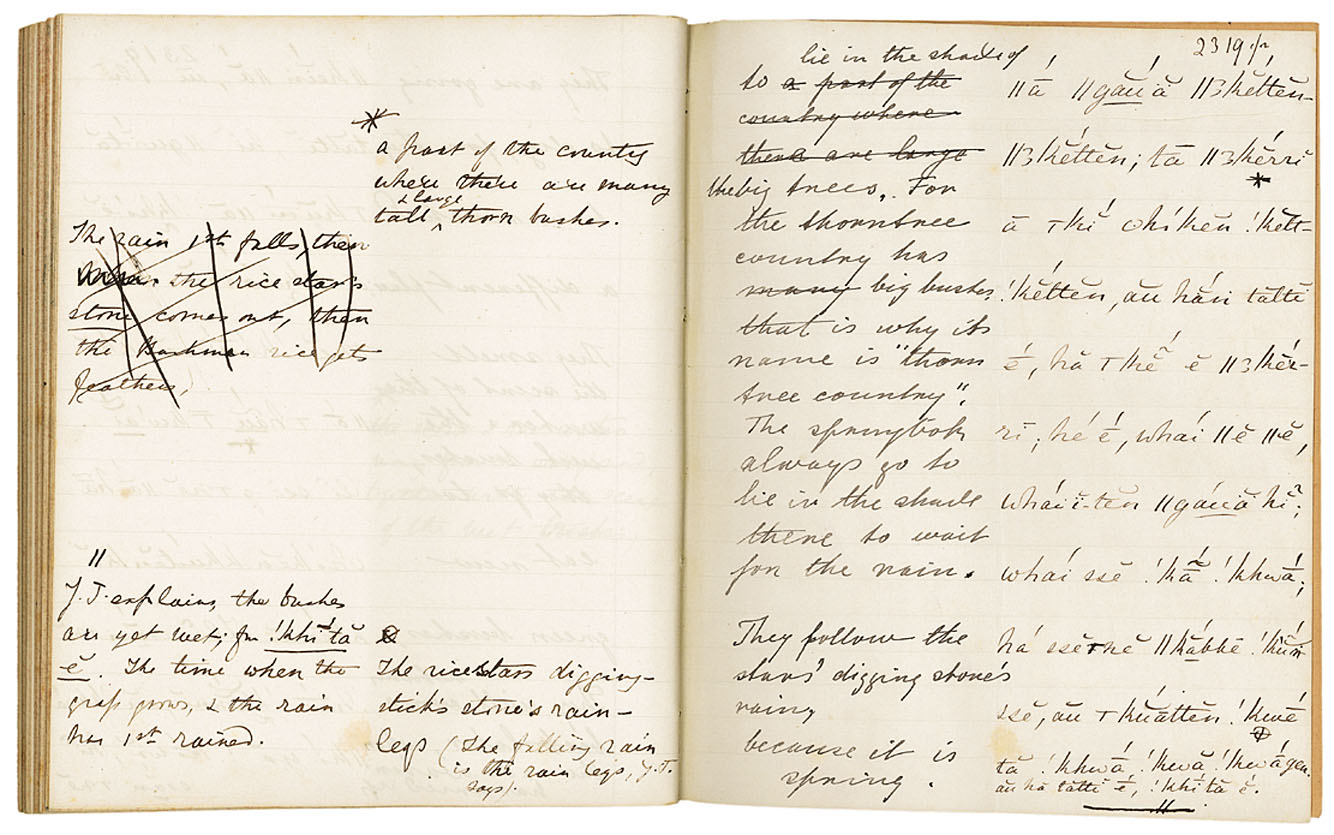 *
a part of the country
where there are many
tall & large thorn bushes.
The rain 1st falls, then
the rice stars
stone comes out, then
the Bushman rice gets
feathers,
||
J.T. explains, the bushes
are yet wet; for !khī tā
ĕ. The time when the
grass grows, & the rain
has 1st rained.
The rice stars digging-
stick's stone's rain-
legs (the falling rain
is the rain legs, J.T.
says).
2319
lie in the shade of
to a part of the
country where
there are large
the big trees. For
the thorntree
country has
many big bushes
that is why its
name is "thorn
tree country".
The springbok
always go to
lie in the shade
there to wait
for the rain.
They follow the
stars' digging stone's
rain,
because it is
spring.
||ā́ ||găúă ||ȝkĕttĕn-
||ȝkĕ́ttĕn; tā ||ȝkĕ́rrĭ
*
!kĕ́tt-
!kĕ́ttĕn, āu hā́ri tāltĭ
||ȝkĕ́r-
rĭ; hé ĕ́, whaí ||ĕ ||ĕ,
whaí ĭ-tĕn ||găúă hĭ;
whaí ssĕ !kā̃ !khwā́;
hā́ ssĕ nĕ ||kăbbĕ !kŭ́m
!kwĕ́
tā !khwā́, !kwā́ !kwā́gĕn.
āu hā tāltĭ ĕ́, !khī́ tā ĕ́.
||